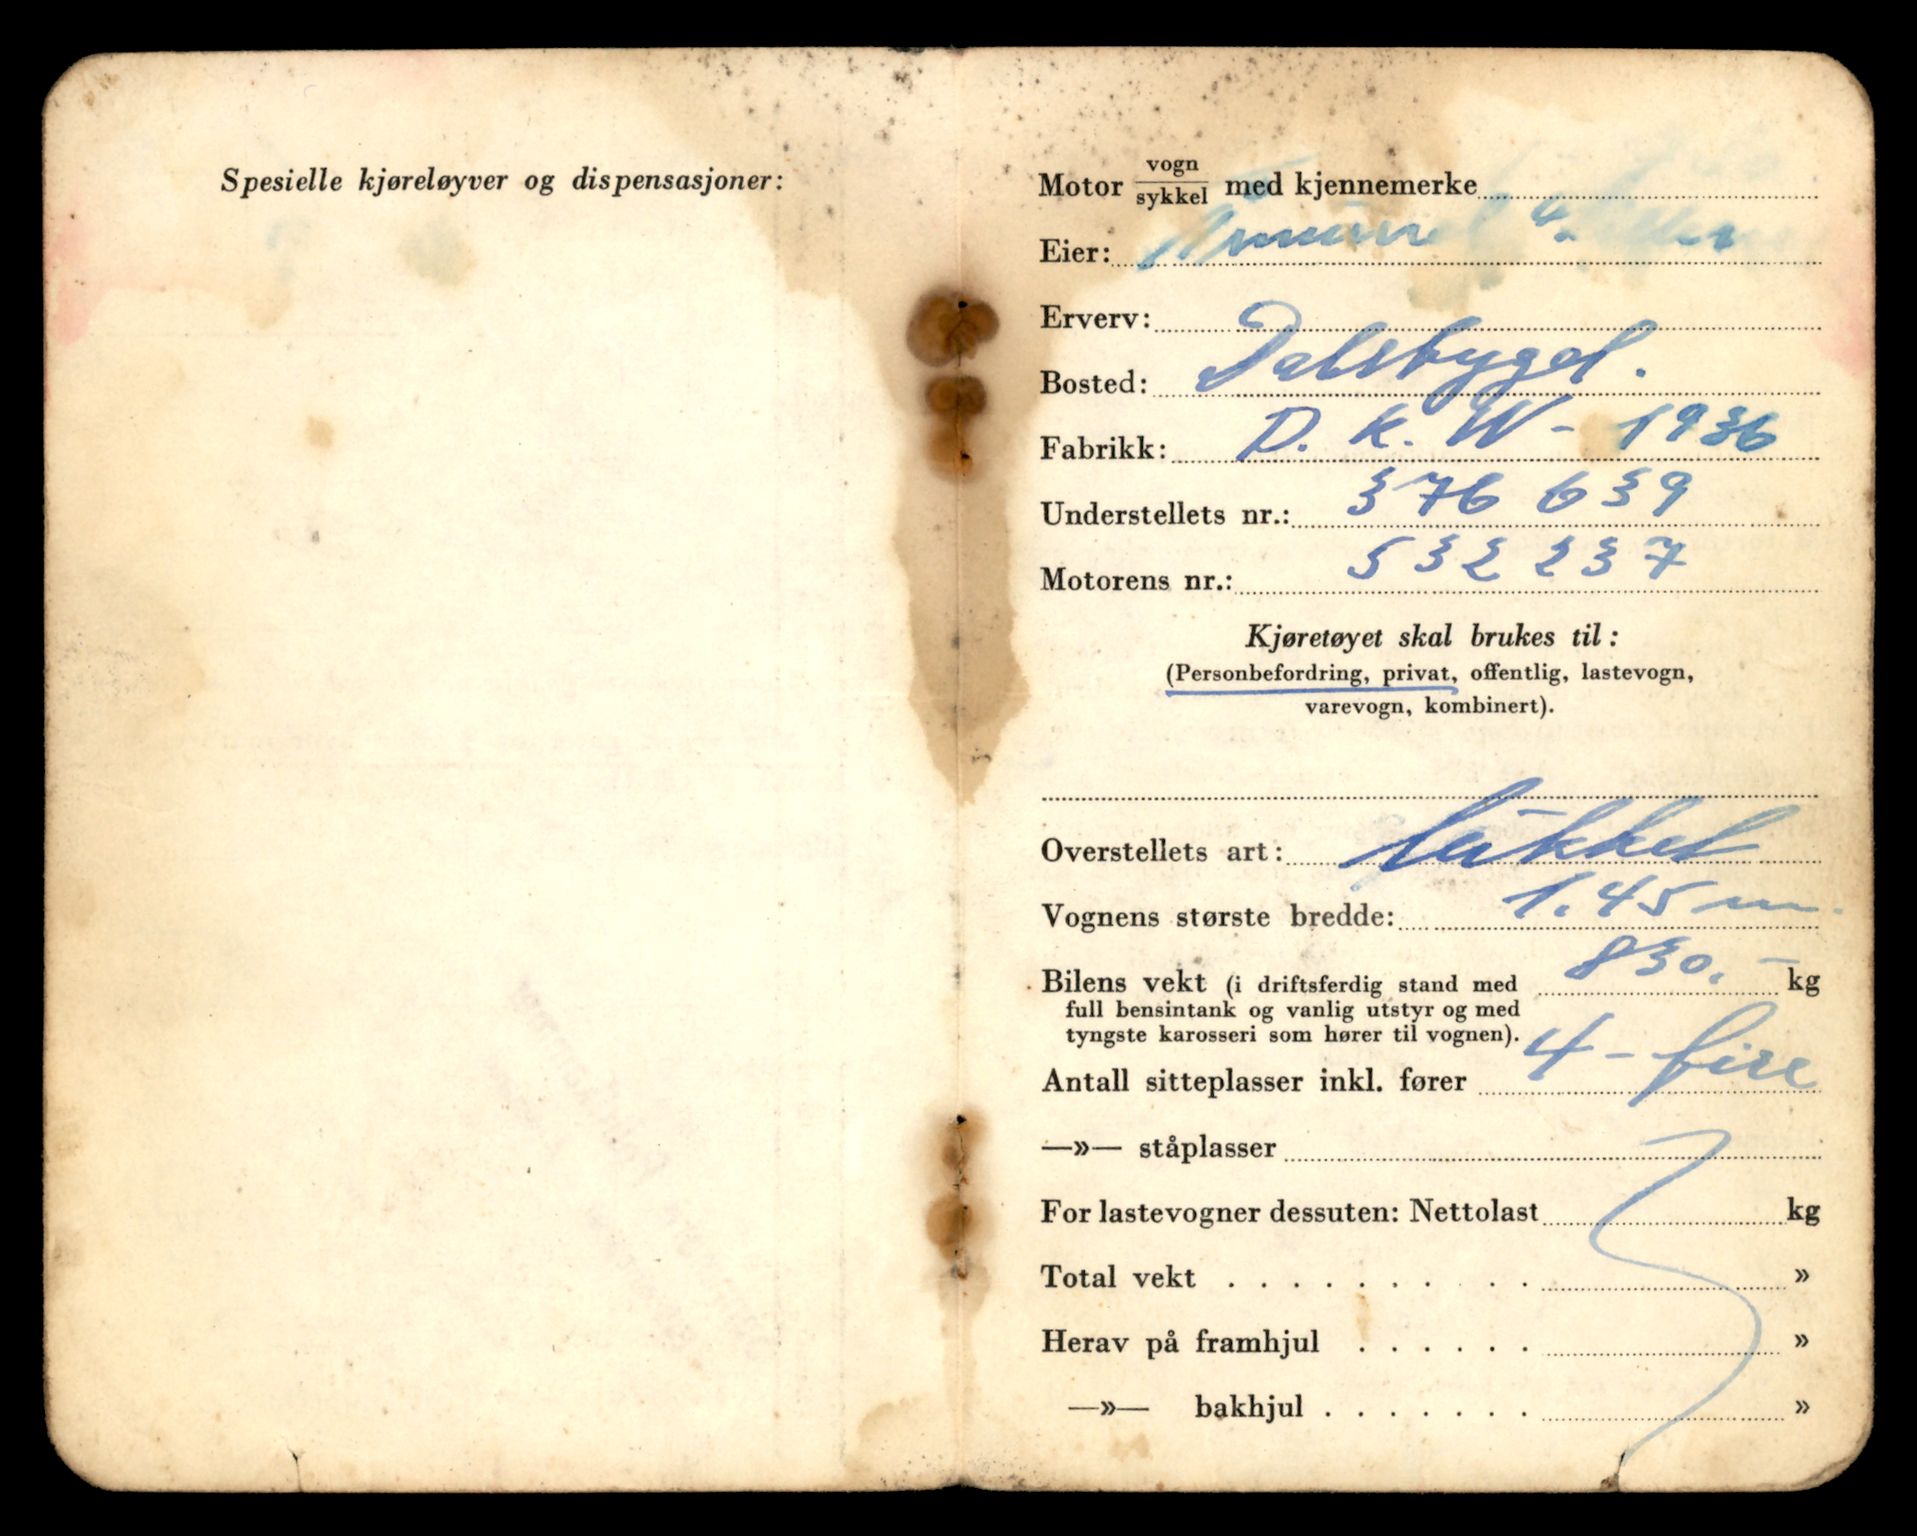 Spesielle kjøreløyver og dispensasjoner:
Motor vogn/sykkel med kjennemerke
Eier:
Erverv:
Bosted: Dalsbygd.
Fabrikk: D.K.W - 1936
Understellets nr.: 376 639
Motorens nr.: 532 237
Kjøretøyet skal brukes til:
(Personbefordring, privat, offentlig, lastevogn,
varevogn, kombinert).
Overstellets art: lukket
Vognens største bredde: 1.45 m.
Bilens vekt (i driftsferdig stand med 830.- kg
full bensintank og vanlig utstyr og med
tyngste karosseri som hører til vognen).
Antall sitteplasser inkl. fører 4 - fire
—»— ståplasser
For lastevogner dessuten: Nettolast kg
Total vekt . . . . . . . . . . »
Herav på framhjul . . . . . . »
—»— bakhjul . . . . . . . »